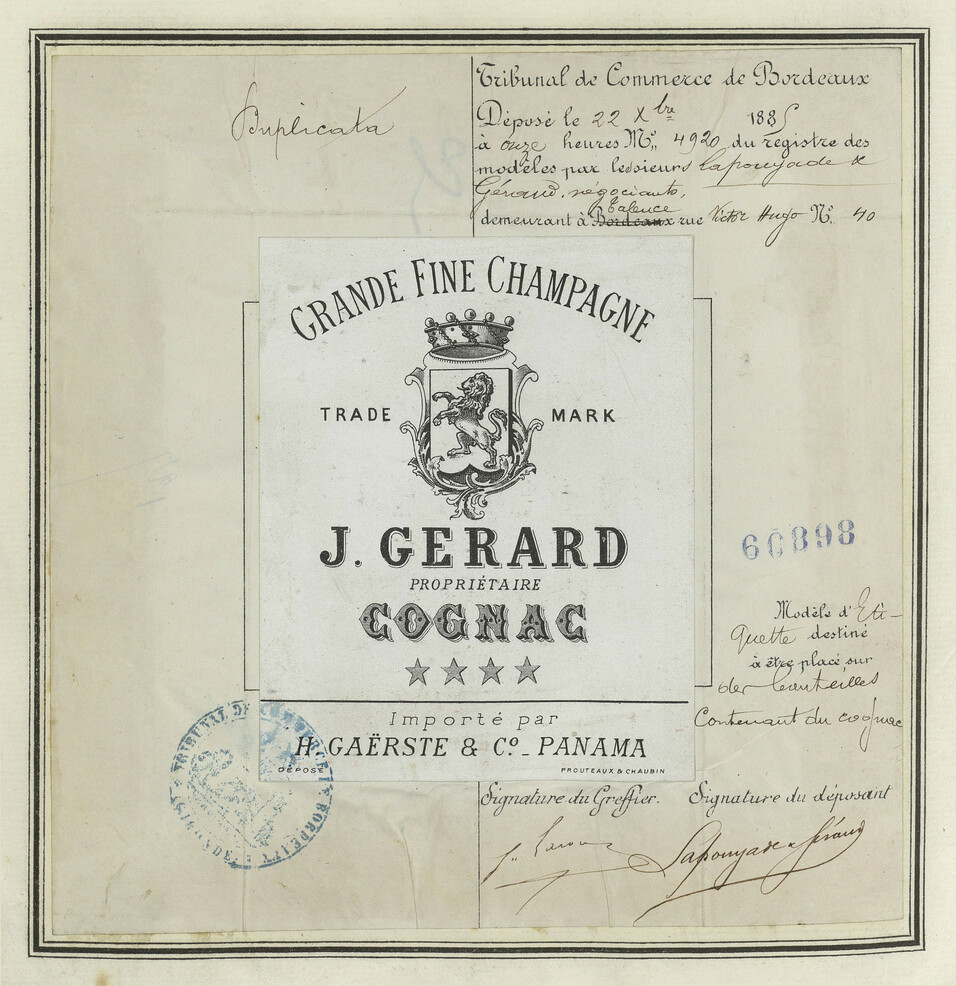 Duplicata
Tribunal de Commerce de Bordeaux
Déposé le 22 Xbre 1885
à onze heures No. 4920 du registre des
modèles par lessieurs Lapouyade &
Géraud, négociants,
Talence
demeurant à Bordeaux rue Victor Hugo No. 40
GRANDE FINE CHAMPAGNE
TRADE MARK
J. GERARD
PROPRIÉTAIRE
COGNAC
60898
Modèle d'Eti-
quette destiné
à être placé sur
des bouteilles
Contenant du cognac
Importé par
H. GAËRSTE & Co_ PANAMA
DÉPOSÉ
PROUTEAUX & CHAUBIN
TRIBUNAL DE COMMERCE
Signature du Greffier.
Signature du déposant
Lapouyade & Géraud